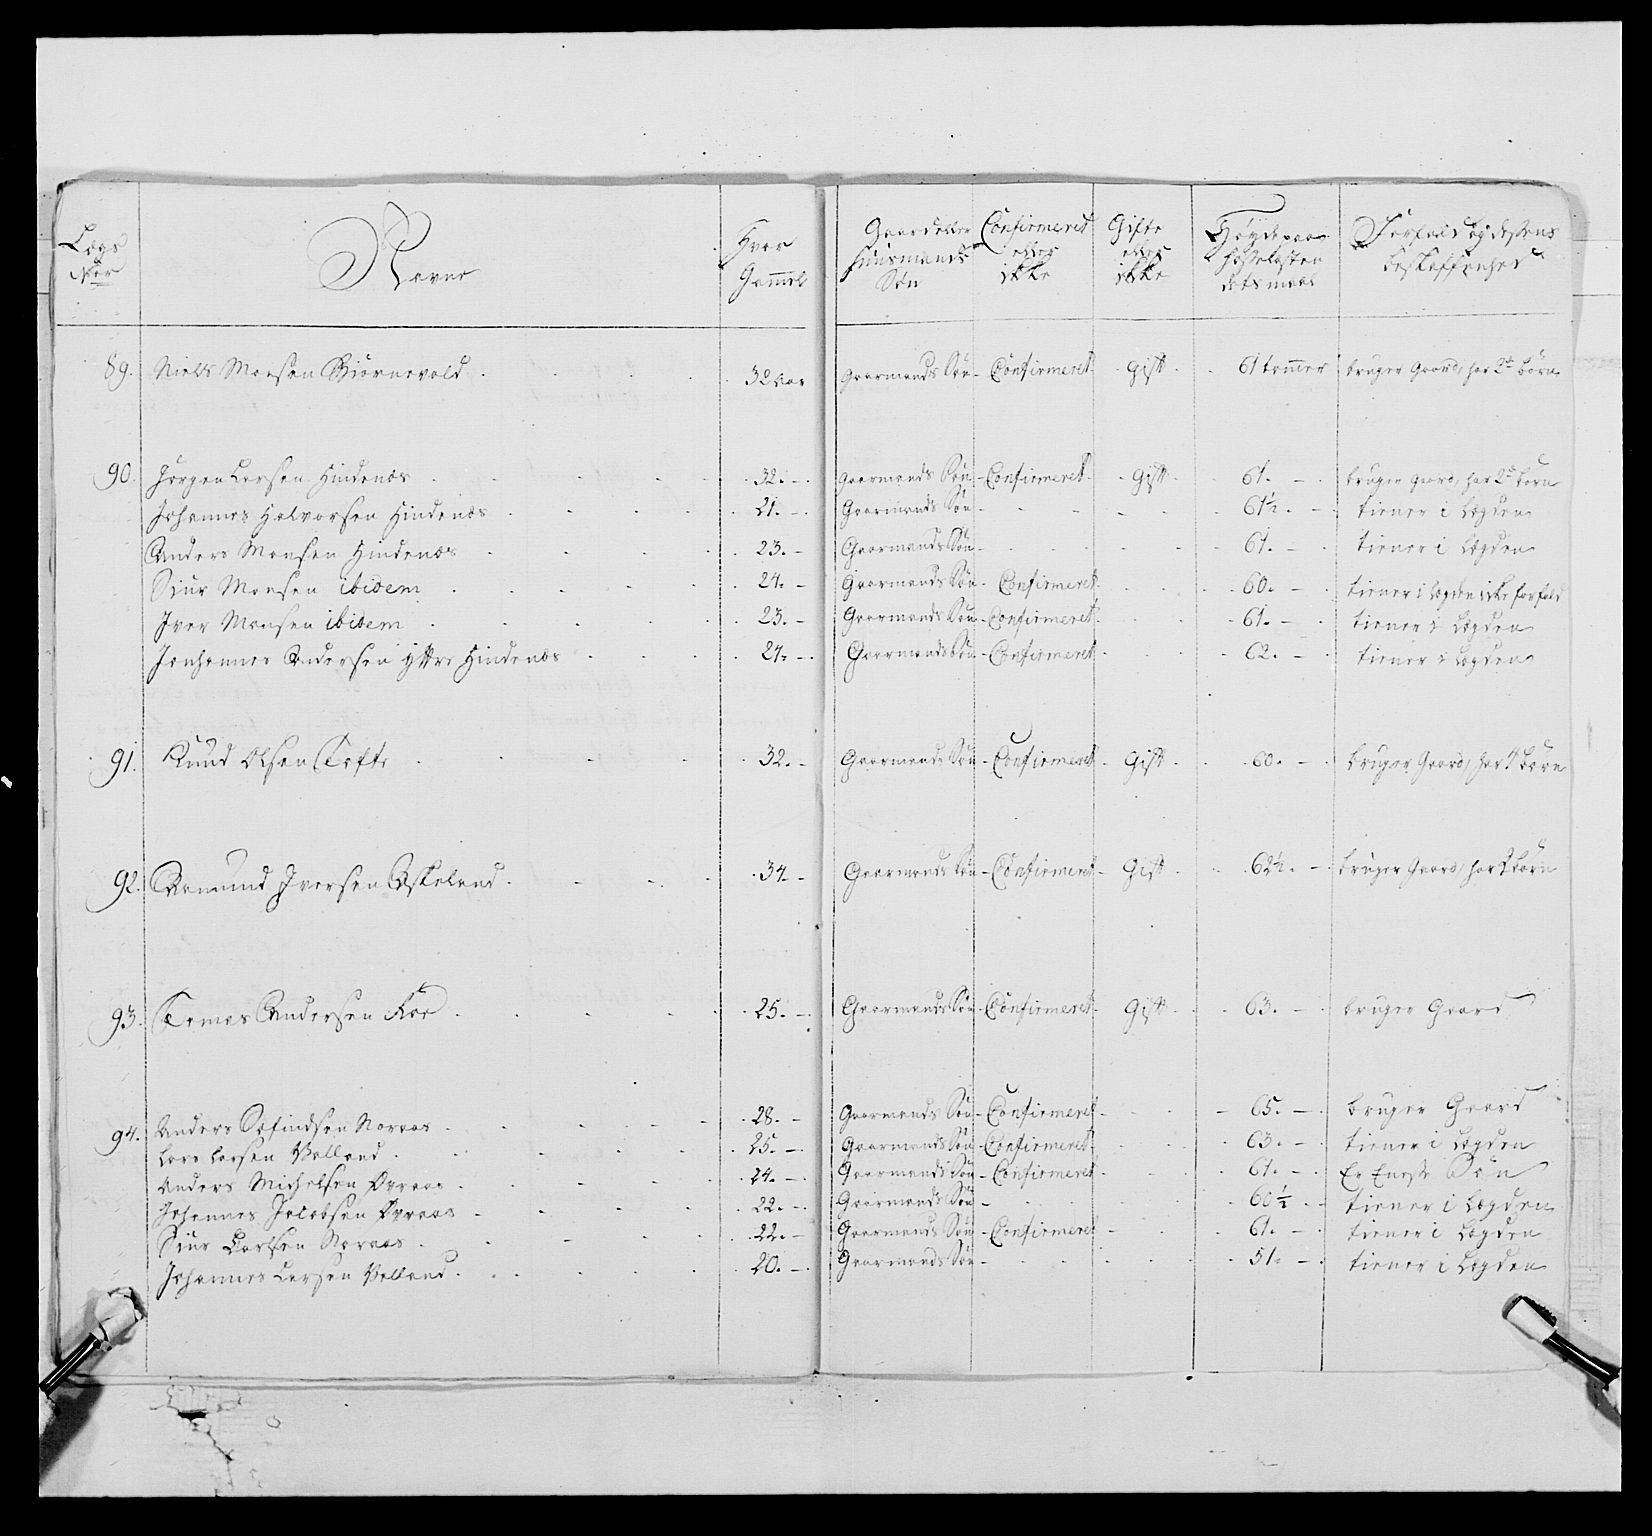 Lægs Nor | Navne | Hvor Gammel | Gaard eller Huusmands Søn | Confirmeret eller ikke | Gifte eller ikke | Høyde paa Hoseløsten dets maal | Forfald og dessens beskaffenhed
89. Niels Monsen Biørnevold 32 Aar Gaarmands Søn Confirmeret gift 61 tommer bruger Gaard, har 2de børn
90. Jørgen Larsen Hindenæs 32. Gaarmands Søn Confirmeret gift 61. bruger gaard, har 2de børn
Johannes Halvorsen Hindenæs 21. Gaarmands Søn 61½. tiener i Lægden
Anders Monsen Hindenæs 23. Gaarmands Søn 61. tiener i Lægden
Siur Monsen ibidem 24. Gaarmands Søn Confirmeret 60. tiener i Lægden icke forfald
Iver Monsen ibidem 23. Gaarmands Søn Confirmeret 61. tiener i Lægden
Johannes Andersen Yttre Hindenæs 24. Gaarmands Søn Confirmeret 62. tiener i Lægden
91. Knud Olsen Tofte 32. Gaarmands Søn Confirmeret gift 60. bruger Gaard, har 4 børn
92. Aamund Iversen Askeland 34 Gaarmands Søn Confirmeret gift 62½. bruger Gaard, har børn
93. Tomas Andersen 25. Gaarmands Søn Confirmeret gift 63. bruger Gaard
94. Anders Sæfindsen Noraas 28. Gaarmands Søn Confirmeret 65. bruger Gaard
Lars Larsen Valland 25. Gaarmands Søn Confirmeret 63. tiener i Lægden
Anders Michelsen Dyraas 24. Gaarmands Søn Confirmeret 61. Er Eneste Søn
Johannes Jacobsen Dyraas 22. Gaarmands Søn 60½ tiener i Lægden
Siur Carlsen Noraas 22. Gaarmands Søn Confirmeret 61. tiener i Lægden
Johannes Larsen Valland 20. Gaarmands Søn 51. tiener i Lægden